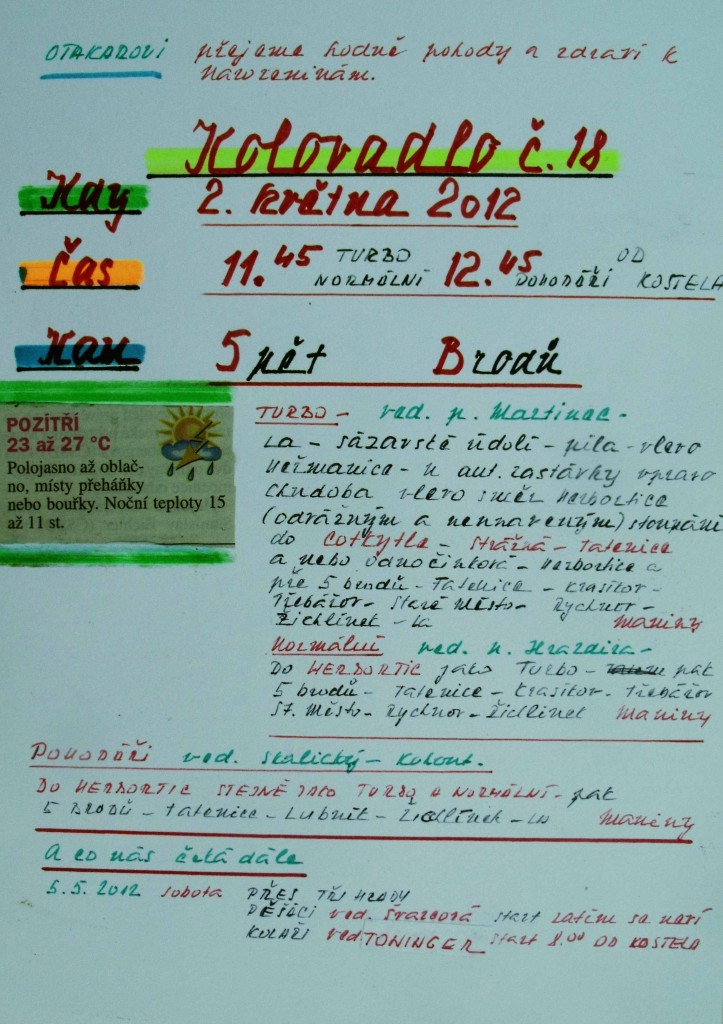 OTAKAROVI přejeme hodně pohody a zdraví k
narozeninám.
Kolovadlo č. 18
Kdy 2. května 2012
Čas 11.45 TURBO NORMÁLNÍ 12.45 POHODÁŘI OD KOSTELA
Kam 5 pět Brodů
POZÍTŘÍ
23 až 27 °C
Polojasno až oblač-
no, místy přeháňky
nebo bouřky. Noční teploty 15
až 11 st.
TURBO - ved. p. Martinec -
La - sázavské údolí - pila - vlevo
Heřmanice - u aut. zastávky vpravo
Chudoba vlevo směr Herbortice
(odvážným a neunaveným) stoupání
do COTKYTLE - Strážná - Tatenice
a nebo odpočinková - Herbortice a
pře 5 brodů - Tatenice - Krasíkov -
Třebářov - Staré Město - Rychnov -
Žichlínek - La Maniny
Normální ved. p. Hrazdira -
Do HERBORTIC jako Turbo - pak
5 brodů - Tatenice - Krasíkov - Třebářov
St. Město - Rychnov - Židlínek Maniny
POHODÁŘI ved. Skalický - Kohout.
DO HERBORTIC STEJNĚ JAKO TURBO A NORMÁLNÍ - pak
5 Brodů - Tatenice - Lubník - Židlínek - La Maniny
A co nás čeká dále
5.5.2012 sobota PŘES TŘI HRADY
PĚŠÁCI ved. Švarcová start zatím se vaří
KOLAŘI ved TONINGER start 8.00 OD KOSTELA